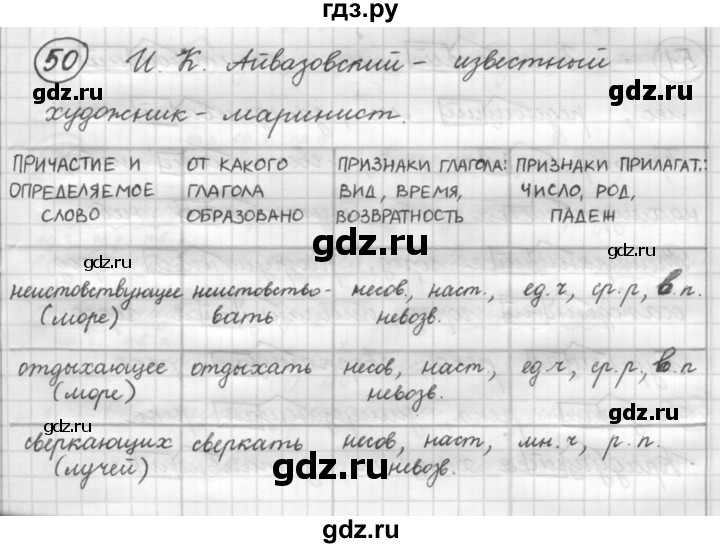 гдз.ру
50 И. К. Айвазовский - известный
gdz.ru gdz.ru
художник - маринист.
ПРИЧАСТИЕ И ОПРЕДЕЛЯЕМОЕ СЛОВО
ОТ КАКОГО ГЛАГОЛА ОБРАЗОВАНО
ПРИЗНАКИ ГЛАГОЛА: ВИД, ВРЕМЯ, ВОЗВРАТНОСТЬ
ПРИЗНАКИ ПРИЛАГАТ.: ЧИСЛО, РОД, ПАДЕЖ
gdz.ru gdz.ru
неистовствующее (море)
неистовство-
вать
несов., наст., невозв.
ед.ч, ср.р, в.п.
gdz.ru gdz.ru
отдыхающее (море)
отдыхать
несов, наст., невозв.
ед.ч, ср.р, в.п
сверкающих (лучей)
сверкать
несов, наст, невозв.
мн.ч, р.п.
gdz.ru gdz.ru
gdz.ru